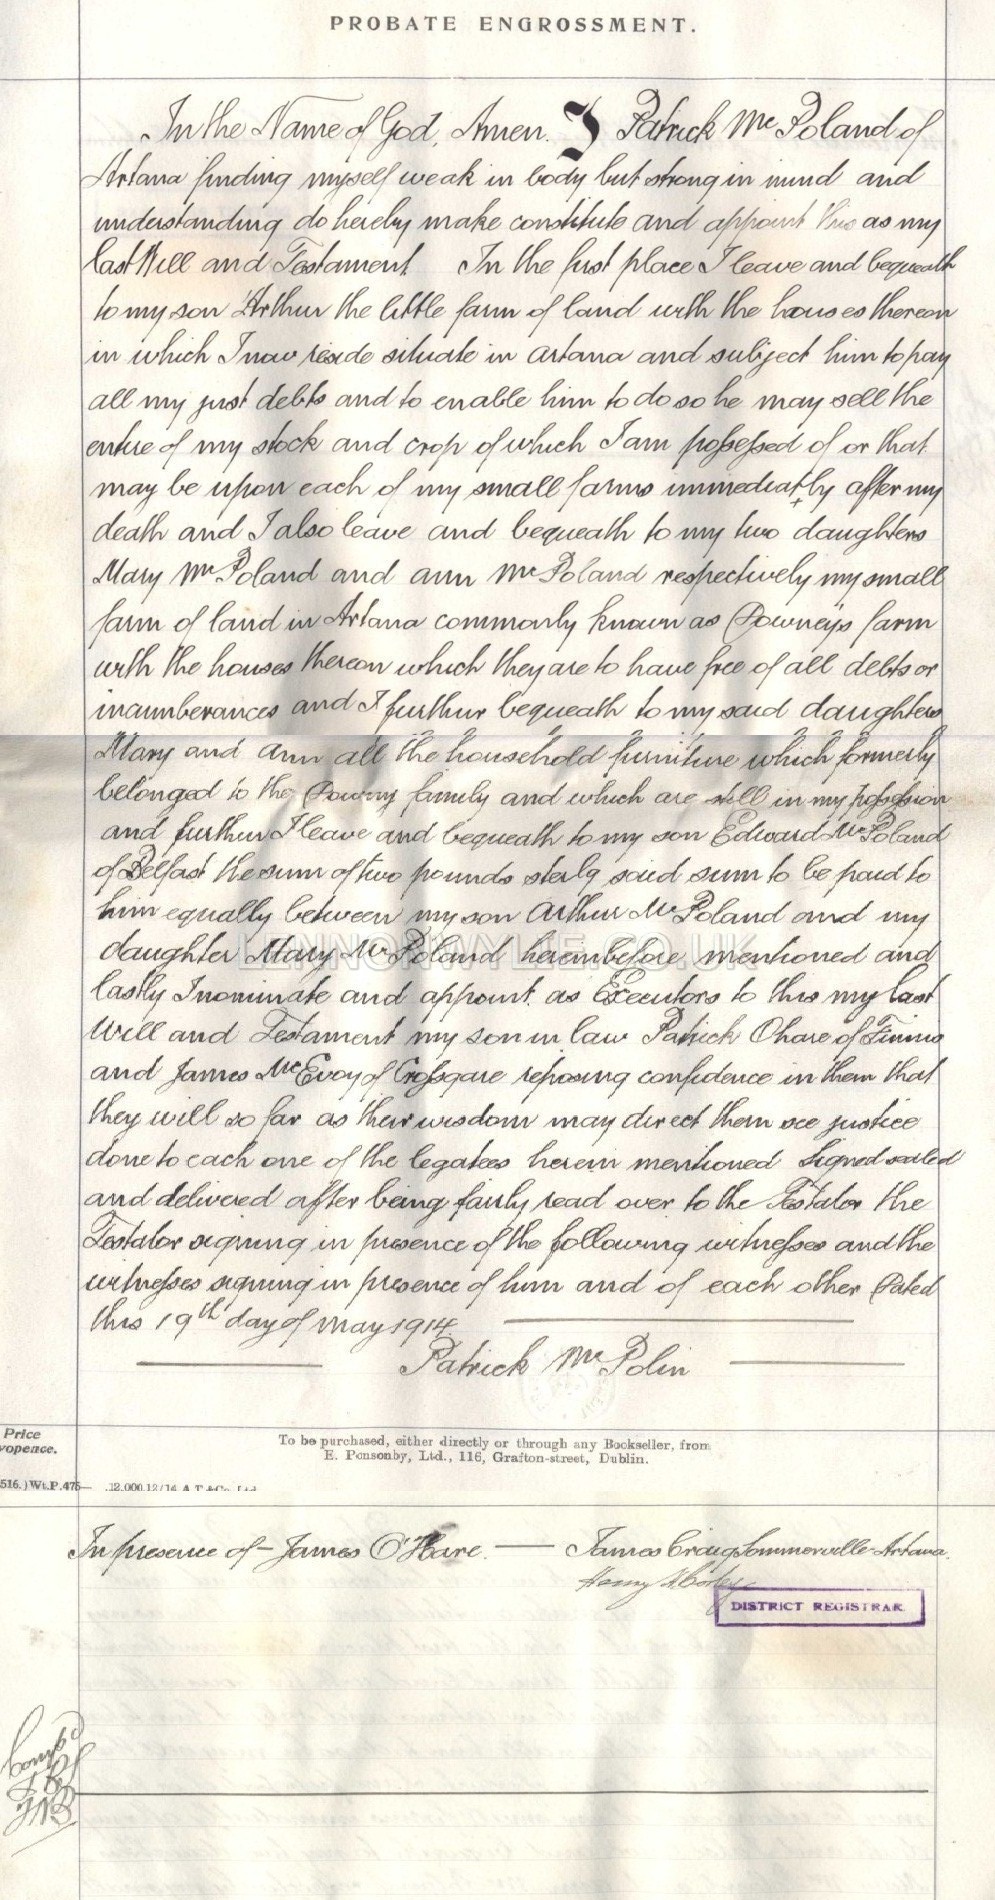 PROBATE ENGROSSMENT.
In the Name of God, Amen. I Patrick McPoland of
Artana finding myself weak in body but strong in mind and
understanding do hereby make constitute and appoint this as my
last Will and Testament In the first place I leave and bequeath
to my son Arthur the little farm of land with the houses thereon
in which I now reside situate in Artana and subject him to pay
all my just debts and to enable him to do so he may sell the
entire of my stock and crop of which I am possessed of or that
may be upon each of my small farms immediatly after my
death and I also leave and bequeath to my two daughters
Mary McPoland and Ann McPoland respectively my small
farm of land in Artana commonly known as Downey's farm
with the houses thereon which they are to have free of all debts or
incumberances and I further bequeath to my said daughters
Mary and Ann all the household furniture which formerly
belonged to the Downy family and which are still in my possession
and further I leave and bequeath to my son Edward McPoland
of Belfast the sum of two pounds sterlg said sum to be paid to
him equally between my son Arthur McPoland and my
daughter Mary McPoland hereinbefore mentioned and
LENNONWYLIE.CO.UK
lastly I nominate and appoint as Executors to this my last
Will and Testament my son in law Patrick Ohare of Finnis
and James McEvoy of Crossgare reposing confidence in them that
they will so far as their wisdom may direct them see justice
done to each one of the legatees herein mentioned Signed sealed
and delivered after being fairly read over to the Testator the
Testator signing in presence of the following witnesses and the
witnesses signing in presence of him and of each other Dated
this 19th day of May 1914
Patrick McPolin
Price
To be purchased, either directly or through any Bookseller, from
E. Ponsonby, Ltd., 116, Grafton-street, Dublin.
516.)Wt.P.475— .12,000.12/16 A.T.&Co. Ltd
In presence of – James O'Hare. — James Craig Sommerville Artana.
Henry
DISTRICT REGISTRAR.